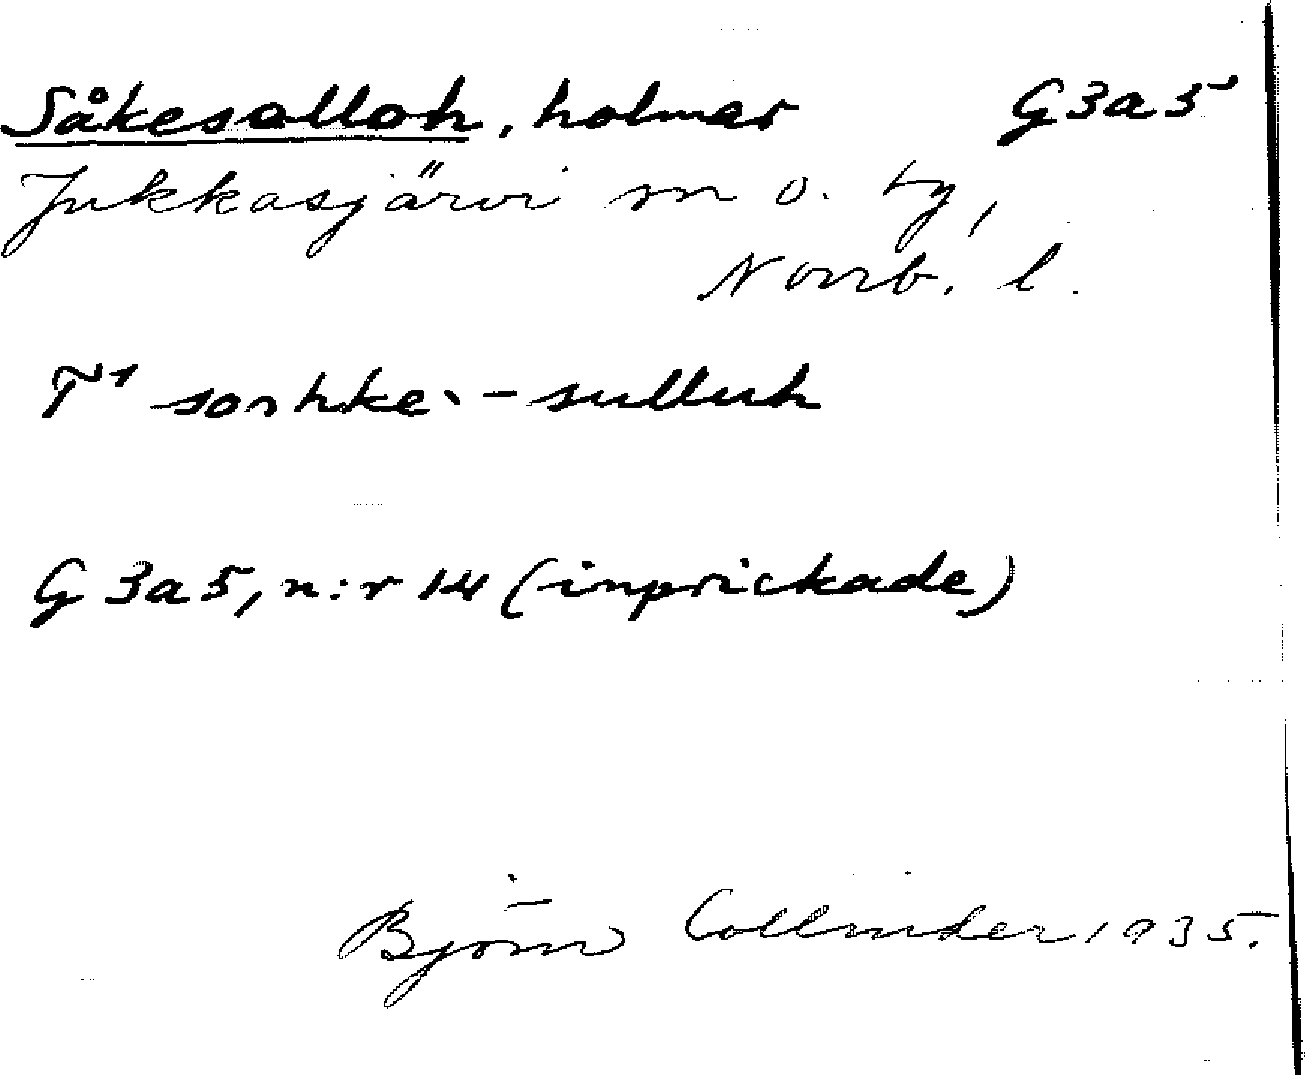 Såkesolloh, holmar G3a5
Jukkasjärvi sn o. ty,
Norrb. l.
T1 soshke. -sulluh
G 3a5, n:r 14 (inprickade)
Björn Collinder 1935.